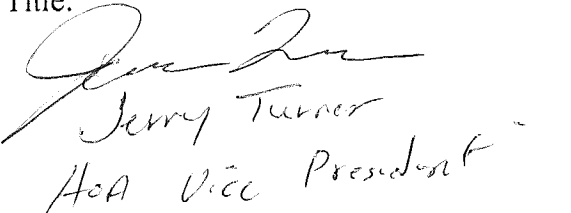 Title:
Jerry Turner
HOA Vice President